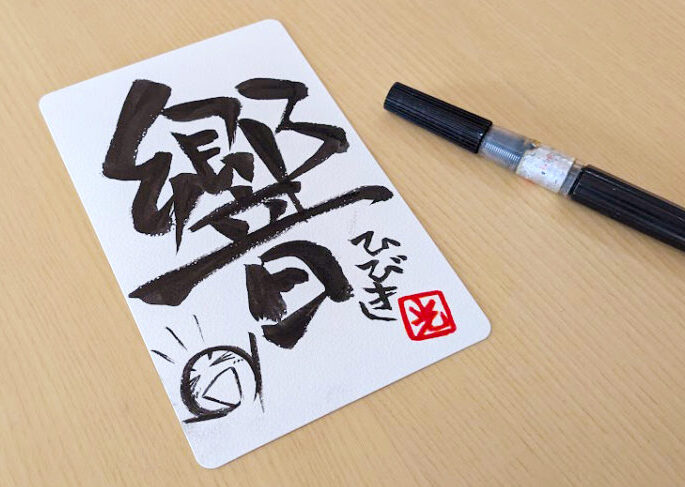 響
ひびき
光